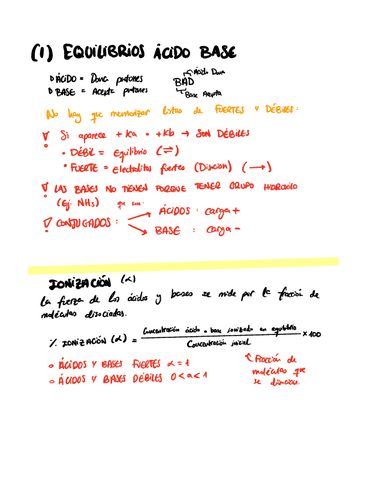 (1) EQUILIBRIOS ÁCIDO BASE
ÁCIDO = Dona protones
BASE = Acepta protones
Ácido Dona
BAD
Base Acepta
No hay que memorizar listas de FUERTES Y DÉBILES:
Si aparece + Ka o + Kb → SON DÉBILES
• DÉBIL = Equilibrio (⇌)
• FUERTE = electrolitos fuertes (Disocian) (⟶)
LAS BASES NO TIENEN PORQUE TENER GRUPO HIDROXILO
(Ej. NH₃) que sea
CONJUGADOS: → ÁCIDOS: carga +
→ BASE: carga -
IONIZACIÓN (α)
La fuerza de los ácidos y bases se mide por la fracción de
moléculas disociadas.
% IONIZACIÓN (α) = Concentración ácido o base ionizada en equilibrio / Concentración inicial × 100
• ÁCIDOS Y BASES FUERTES α = 1
• ÁCIDOS Y BASES DÉBILES 0 < α < 1
Fracción de
moléculas que
se disocian